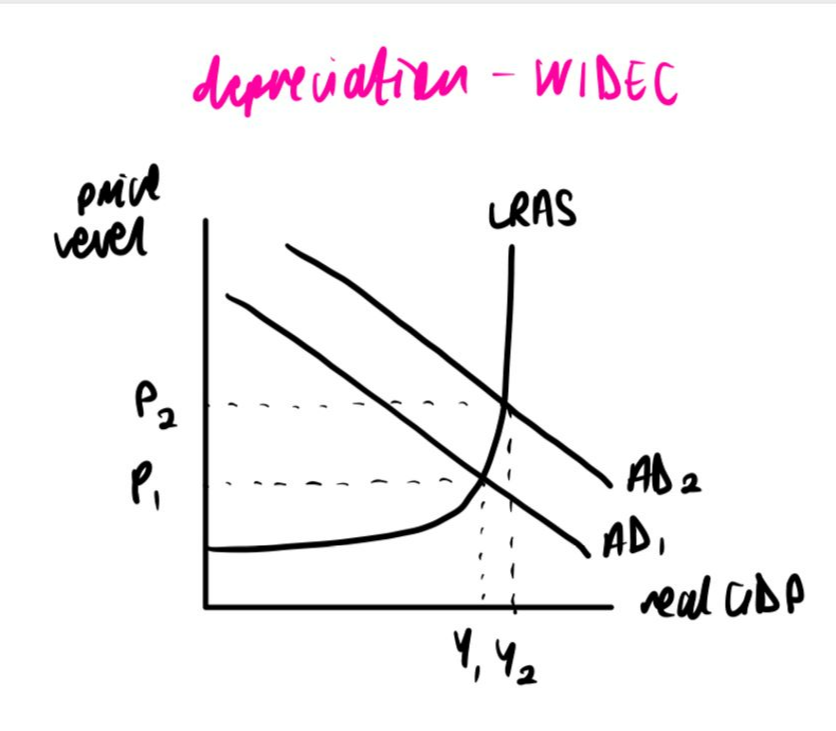 depreciation - WIDEC
price
level
LRAS
P2
P1
AD2
AD1
real GDP
Y1 Y2